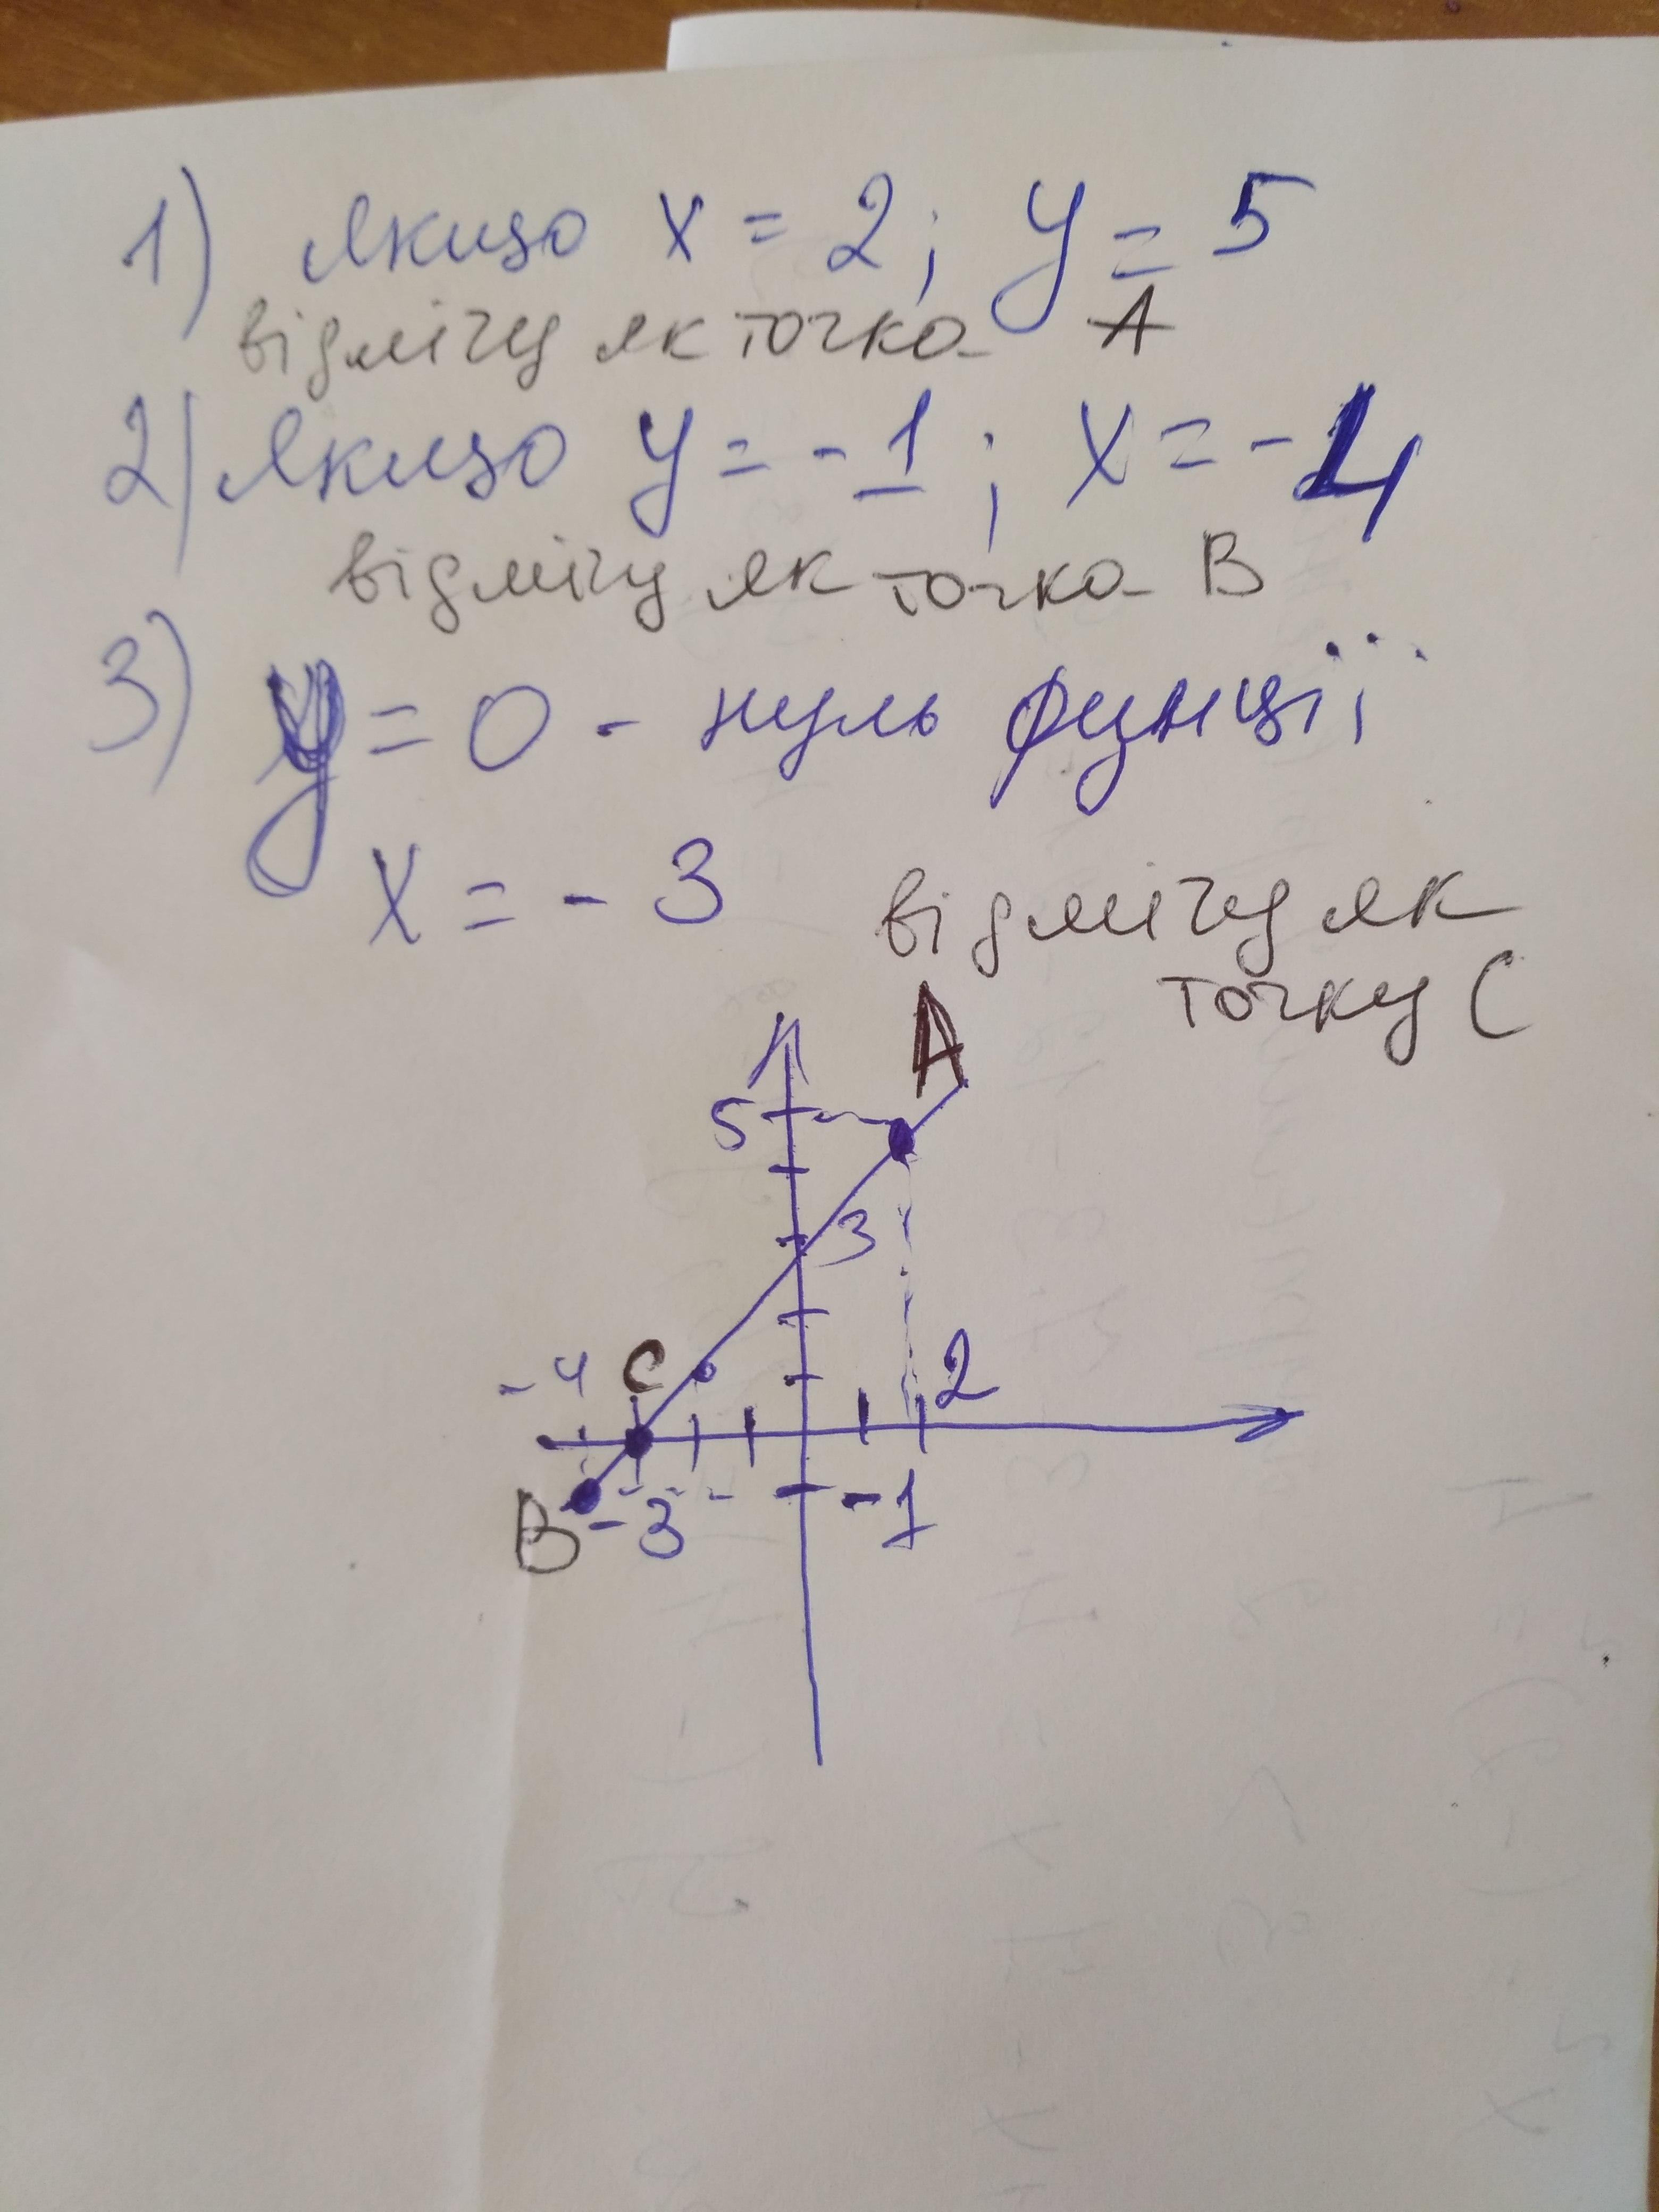 1) якщо x = 2; y = 5
відмічу як точка A
2) якщо y = -1; x = -4
відмічу як точка B
3) y = 0 - нуль фунції
x = -3 відмічу як
точку C
A
5
3
-4 C 2
B -3 -1